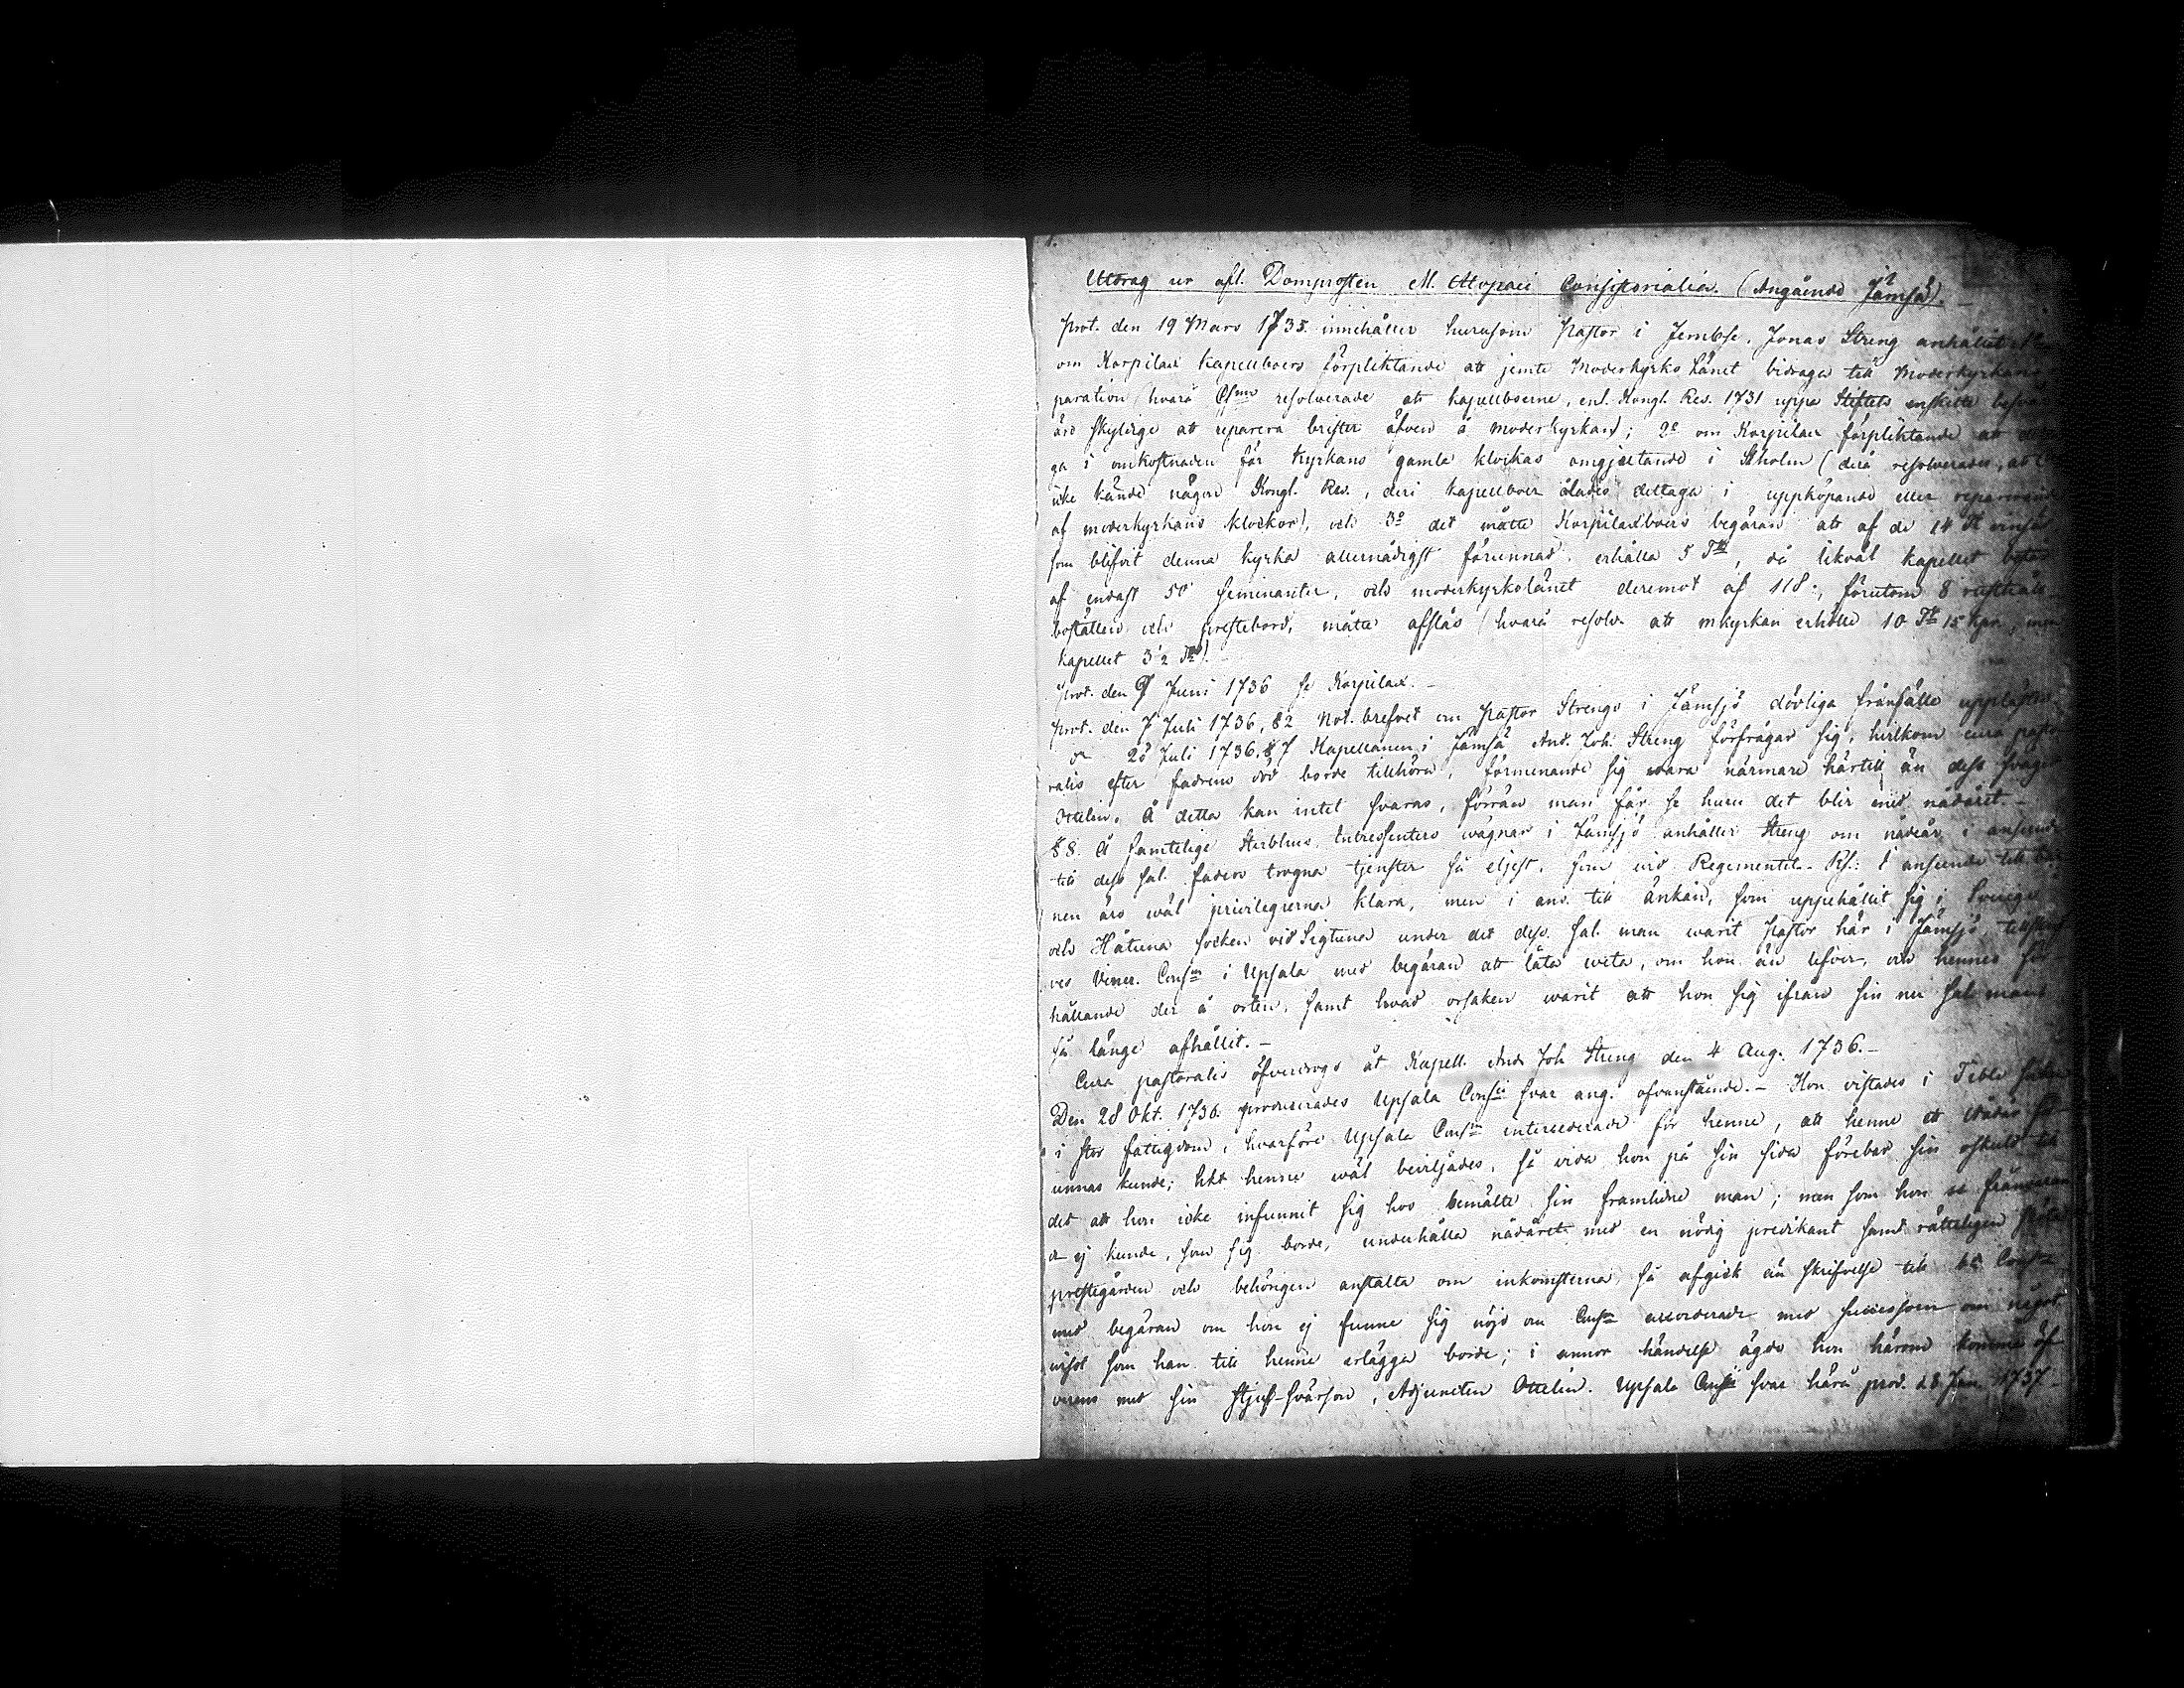 1.
Utdrag ur afl. Domprosten M. Alopaei Consistorialia. (Angående Jämsä).
Prot. den 19 Mars 1735. innehåller hurusom Pastor i Jembse, Jonas Streng anhållit
om Korpilax kapellboers förpliktande att jemte Moderkyrko Länet bidraga till Moderkyrkans
paration (hvarå Csm resolverade att kapellboerne, enl. Kongl. Res. 1731 uppå Stiftets enskilta
äro skyldige att reparera brister äfven å moderkyrkan); 2o om Korpilax förpliktande att
ga i omkostnaden för kyrkans gamla klockas omgjutande i Stholm (derå resolverades, att
icke kände någon Kongl. Res., deri kapellboer ålades deltaga i upphöpande eller reparerande
af moderkyrkans klockor), och 3o det måtte Korpilaxboers begäran att af de 14
som blifvit denna kyrka allernådigst förunnad. erhålla 5 T, då likväl kapellet
af endast 50 seminanter, och moderkyrkolänet deremot af 118:, förutom 8
boställen och prestebord, måtte afslås (hvarå resolv. att mkyrkan erhölle 10 T 15 kpr, men
kapellet 3½ T).
Prot. den 9 Juni 1736 se Korpilax. -
Prot. den 7 Juli 1736, § 2 Not. brefvet om Pastor Strengs i Jämsjö dödliga frånfälle
28 Juli 1736. § 7 Kapellanen i Jämsä And. Joh. Streng förfrågar sig, hvilkom cura pasto
ralis efter fadrens död borde tillhöra, förmenande sig wara närmare härtill än dess swåger
Ottelin. Å detta kan intet svaras, förrän man får se huru det blir med nådåret. -
§ 8. Å samtelige Sterbhus Intressenters wägnar i Jämsjö anhåller Streng om nådår, i anseende
till dess sal. faders trogna tjenster så eljest, som vid Regementet. Rs: I anseende till
nen äro wäl privilegierna klara, men i ans. till änkan, som uppehållit sig i Sverige
och Håtuna socken vid Sigtuna under det dess. sal. man warit Pastor här i Jämsjö,
ves Vener. Consm i Upsala med begäran att låta weta, om hon än lefver, och hennes för
hållande der å orten, samt hvad orsaken warit att hon sig ifrån sin nu sal. mans
så länge afhållit. -
Cura pastoralis öfverdrogs åt Kapell. And. Joh. Streng den 4 Aug. 1736. -
Den 28 Okt. 1736. producerades Upsala Consii svar ang. ofvanstående. - Hon vistades i Tible socken
i stor fattigdom, hvarföre Upsala Consm intercederade för henne, att henne ett nådår
unnas kunde; hkt henne wäl beviljades, så vida hon på sin sida förebar sin oskuld till
det att hon icke infunnit sig hos bemälte sin framlidne man; men som hon
ej kunde, som sig borde, underhålla nådåret med en nödig predikant samt rätteligen sköta
prestegården och behörigen anstalta om inkomsterna, så afgick en skrifvelse till
med begäran om hon ej funne sig nöjd om Consm accorderade med successoren om något
wisst som han till henne erlägga borde; i annor händelse ägde hon härom komma öf
verens med sin Styf-svärson, Adjuncten Ottelin. Upsala Consii svar härå prod. 28 Jan. 1737